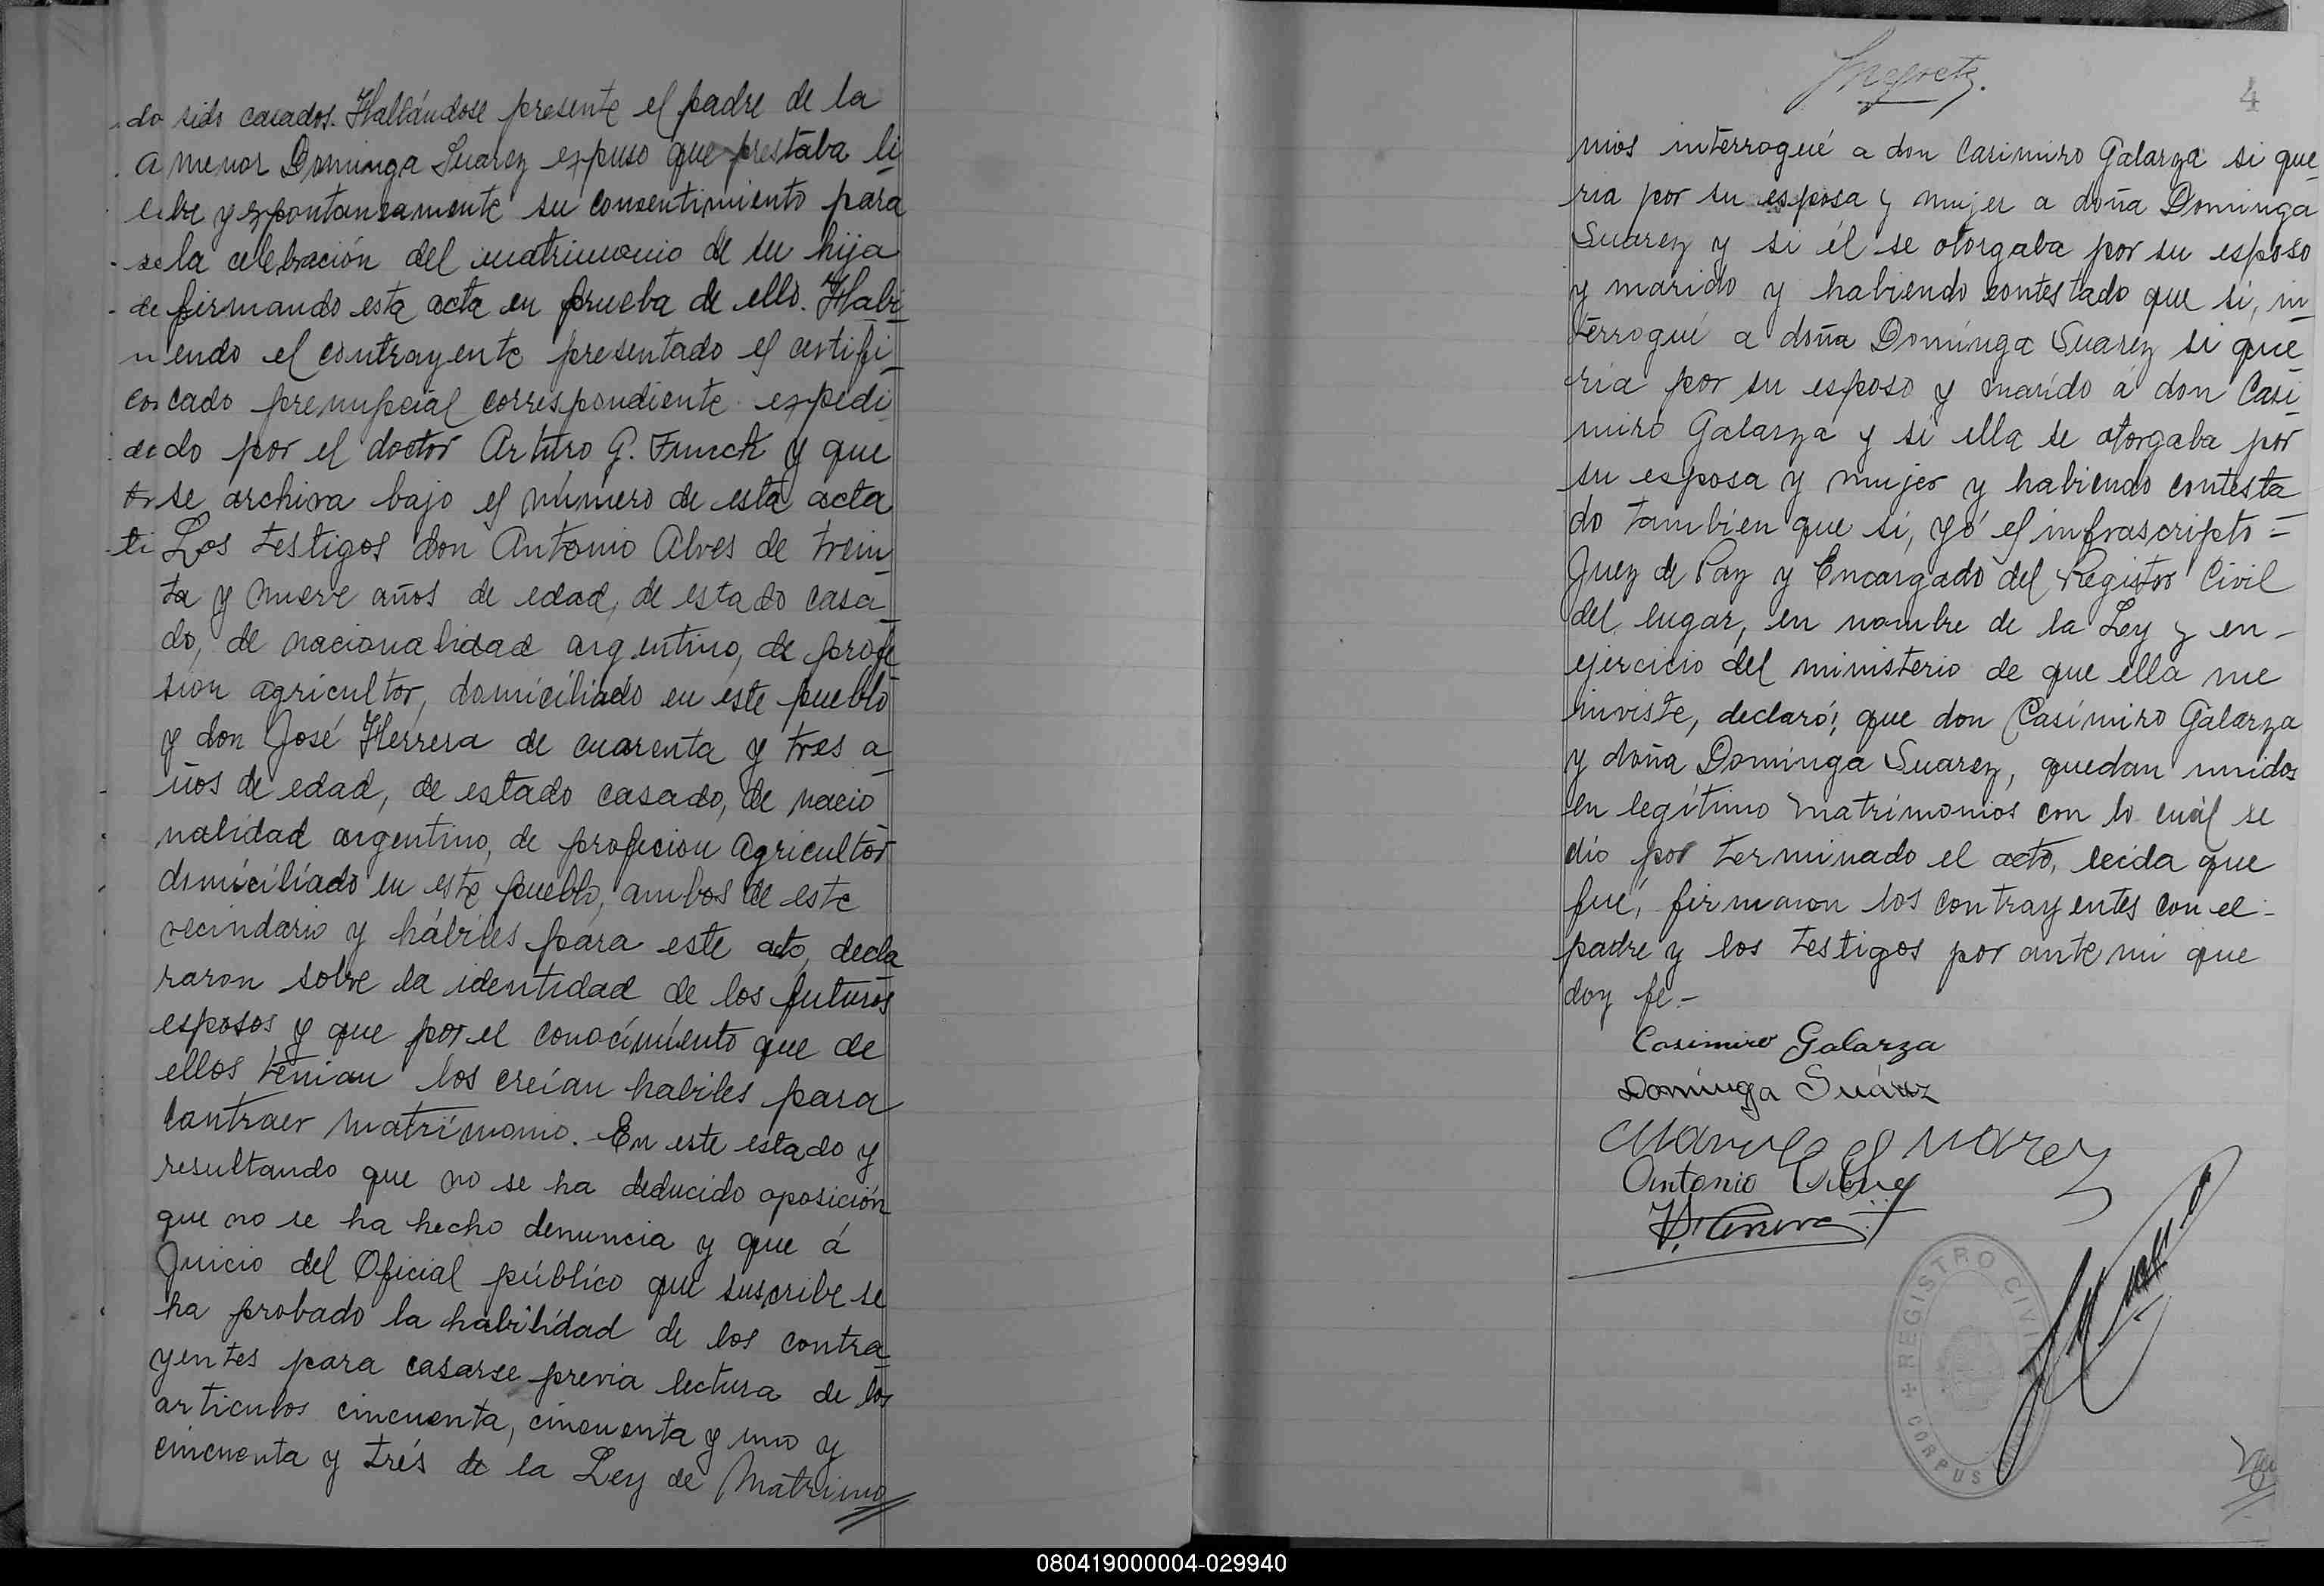 do sido casados. Hallándose presente el padre de la
a menor Dominga Suarez expuso que prestaba li
bre y espontaneamente su consentimiento para
la celebración del matrimonio de su hija
firmando esta acta en prueba de ello. Habi
endo el contrayente presentado el certifi
cado prenupcial correspondiente expedi
do por el doctor Arturo G. Funck y que
se archiva bajo el número de esta acta
Los testigos don Antonio Alves de trein
ta y nueve años de edad, de estado casa
do, de nacionalidad argentino, de profe
sion agricultor, domiciliado en este pueblo
y don José Herrera de cuarenta y tres a
ños de edad, de estado casado, de nacio
nalidad argentino, de profecion agricultor
domiciliado en este pueblo, ambos de este
vecindario y hábiles para este acto, decla
raron sobre la identidad de los futuros
esposos y que por el conocimiento que de
ellos tenian los creían habiles para
contraer matrimonio. En este estado y
resultando que no se ha deducido oposición
que no se ha hecho denuncia y que á
Juicio del Oficial público que suscribe se
ha probado la habilidad de los contra
yentes para casarse previa lectura de los
articulos cincuenta, cincuenta y uno y
cincuenta y trés de la Ley de Matrimo
4
nios interrogué a don Casimiro Galarza si que
ria por su esposa y mujer a doña Dominga
Suarez y si él se otorgaba por su esposo
y marido y habiendo contestado que si, in
terrogué a doña Dominga Suarez si que
ria por su esposo y marido á don Casi
miro Galarza y si ella se otorgaba por
su esposa y mujer y habiendo contesta
do tambien que si, yó el infrascripto =
Juez de Paz y Encargado del Registro Civil
del lugar, en nombre de la Ley y en -
ejercicio del ministerio de que ella me
inviste, declaró; que don Casimiro Galarza
y doña Dominga Suarez, quedan unidos
en legítimo matrimonios con lo cuál se
dio por terminado el acto, leida que
fué, firmaron los contrayentes con el -
padre y los testigos por ante mi que
doy fe.-
Casimiro Galarza
Dominga Suárez
Antonio
REGISTRO CIVIL
CORPUS
080419000004-029940